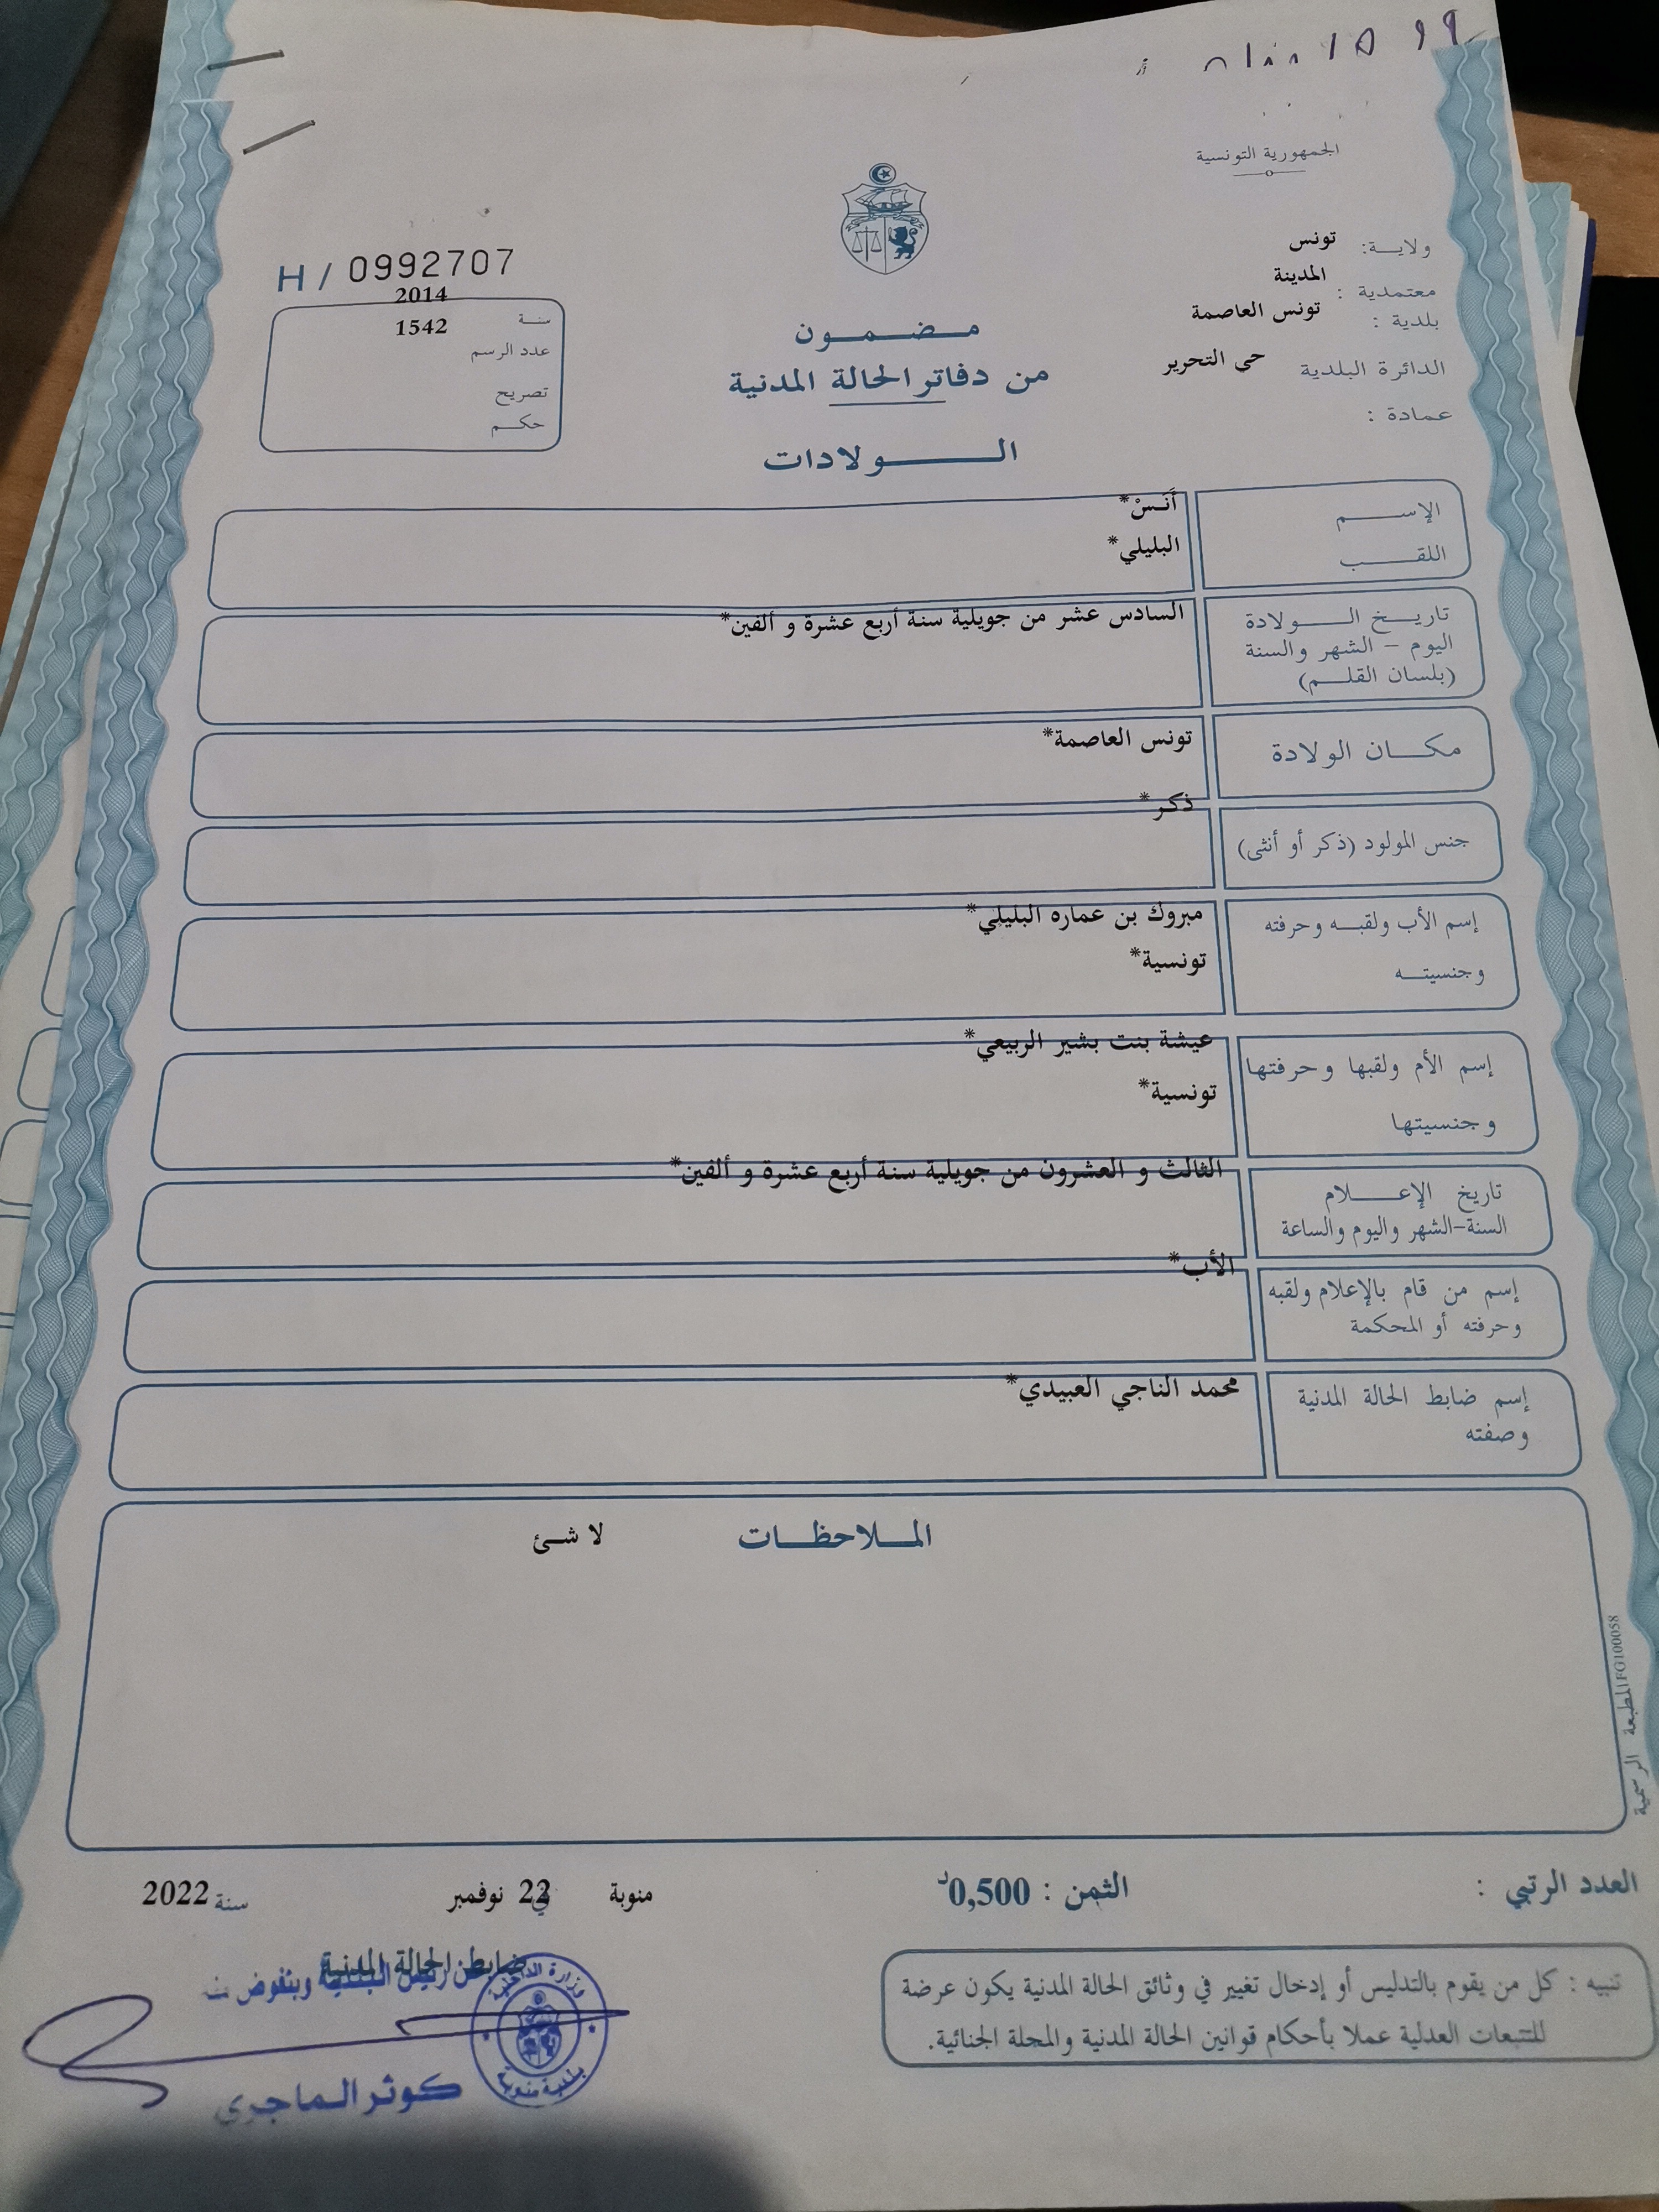 الجمهورية التونسية
ولاية: تونس
معتمدية : المدينة
بلدية : تونس العاصمة
الدائرة البلدية حي التحرير
عمادة :
H / 0992707
سنة 2014
عدد الرسم 1542
تصريح
حكم
مضمون
من دفاتر الحالة المدنية
الولادات
الإسم أَنَسْ*
اللقب البليلي*
تاريخ الولادة السادس عشر من جويلية سنة أربع عشرة و ألفين*
اليوم - الشهر والسنة
(بلسان القلم)
مكان الولادة تونس العاصمة*
جنس المولود (ذكر أو أنثى) ذكر*
إسم الأب ولقبه وحرفته مبروك بن عماره البليلي*
وجنسيته تونسية*
إسم الأم ولقبها وحرفتها عيشة بنت بشير الربيعي*
وجنسيتها تونسية*
تاريخ الإعلام الثالث و العشرون من جويلية سنة أربع عشرة و ألفين*
السنة-الشهر واليوم والساعة
إسم من قام بالإعلام ولقبه الأب*
وحرفته أو المحكمة
إسم ضابط الحالة المدنية محمد الناجي العبيدي*
وصفته
الملاحظات لا شئ
المطبعة الرسمية FG100058
العدد الرتبي :
الثمن : 0,500د
منوبة في 22 نوفمبر سنة 2022
تنبيه : كل من يقوم بالتدليس أو إدخال تغيير في وثائق الحالة المدنية يكون عرضة
للتتبعات العدلية عملا بأحكام قوانين الحالة المدنية والمجلة الجنائية.
ضابط الحالة المدنية
عن رئيس البلدية وبتفويض منه
وزارة الداخلية
بلدية منوبة
كوثر الماجري